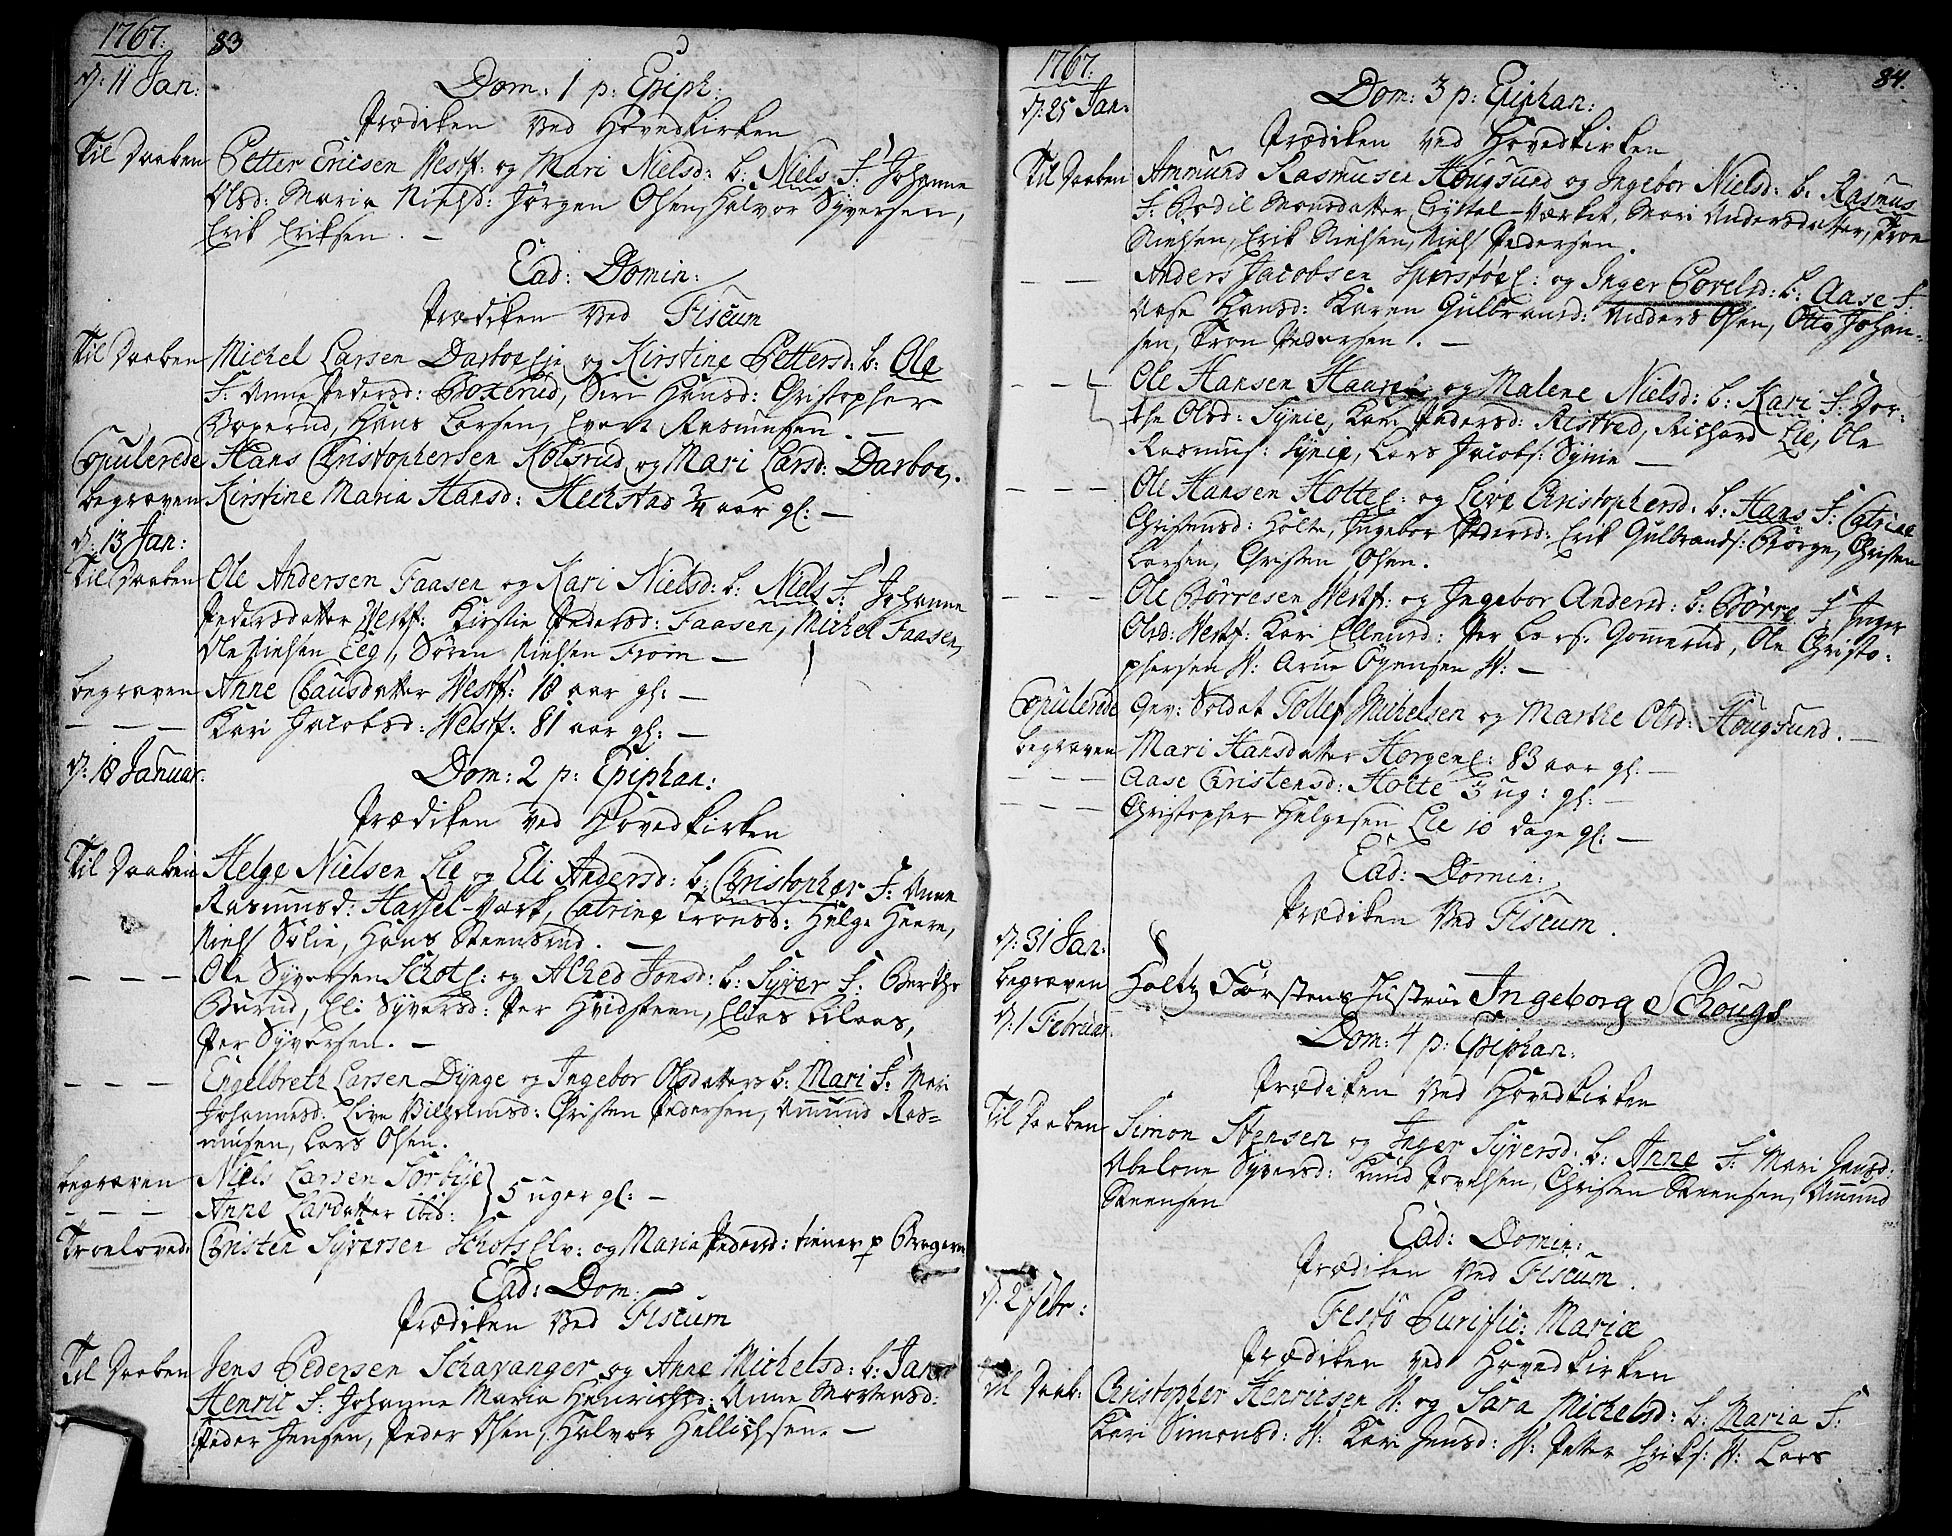 1767. 83
d: 11 Jan: Dom: 1 p: Epiph:
Prædiken ved Hovedkirken
Til Daaben Petter Ericsen Vestf: og Mari Nielsd: b: Niels F: Johanne
Olsd: Maria Nielsd: Jörgen Olsen, Halvor Syversen,
Erik Eriksen. –
Ead: Domin:
Prædiken ved Fiscum
Til Daaben Michel Larsen Darboe og Kirstine Pettersd: b: Ole
F: Anne Pedersd: Boxerud, Siri Hansd: Christopher
Boxerud, Hans Larsen, Evert Rasmusen. –
Copulerede Hans Christophersen Kolsrud og Mari Larsd: Darboe.
begraven Kirstine Maria Hansd: Heckstad 3/4 aar gl: –
d: 13 Jan:
Til Daaben Ole Andersen Faasen og Kari Nielsd: b: Niels F: Johanne
Pedersdatter Vestf: Kirstie Pedersd: Faasen, Michel Faasen,
Ole Nielsen Eeg, Sören Nielsen From –
begraven Anne Clausdatter Vestf: 18 aar gl: –
– – – Kari Jacobsd: Vestf: 81 aar gl: –
d: 18 Januar. Dom: 2 p: Epiphan:
Prædiken ved Hovedkirken
Til Daaben Helge Nielsen Lie og Eli Andersd: b: Christopher F: Anne
Rasmusd: Hassel-Værk, Catrine Tronsd: Helge Heere,
Niels Sölie, Hans Steensrud. –
– – – Ole Syversen Schotel: og Alhed Jonsd: b: Syver F: Berthe
Burud, Eli Syversd: Per Hvidsteen, Elias Lilaas,
Per Syversen. –
– – – Engelbreth Larsen Dynge og Ingebor Olsdatter b: Mari F: Mari
Johannesd: Live Vilhelmsd: Christen Pedersen, Amund Ras=
musen, Lars Olsen.
begraven Niels Larsen Sorbÿe } 5 uger gl: –
– – – Anne Larsdatter ibid:
Troeloved: Christen Syversen Schots Elv: og Maria Pedersd: tiener p Bragern
Ead: Dom:
Prædiken ved Fiscum
Til Daaben Jens Pedersen Schavanger og Anne Michelsd: b: Jan
Henric F: Johanne Maria Henrichsd: Anne Mortensd:
Peder Jensen, Peder Olsen, Halvor Hellichsen. –
1767. 84.
d: 25 Jan: Dom: 3 p: Epiphan:
Prædiken ved Hovedkirken
Til Daaben Ammund Rasmusen Hougsund og Ingebor Nielsd: b: Rasmus
F: Bodil Monsdatter Crystal-Værket, Mari Andersdatter, Tron
Nielsen, Erik Nielsen, Niels Pedersen.
– – Anders Jacobsen og Inger Povelsd: b: Aase F:
Aase Hansd: Karen Gulbransd: Anders Olsen, Otto Johan-
sen, Tron Pedersen. –
– – Ole Hansen Haare og Malene Nielsd: b: Kari F: Dor-
the Olsd: Synie, Kari Pedersd: Ristved, Richard Lie, Ole
Rasmus: Synie, Lars Jacobs: Synie –
– – – Ole Hansen Holte: og Live Christophersd: b: Hans F: Catrine
Christensd: Holte, Ingebor Pedersd: Erik Gulbrands: Borge, Christen
Larsen, Christen Olsen.
– – – Ole Börresen Vestf: og Ingebor Andersd: b: Börre F: Inger
Olsd: Vestf: Kari Ellensd: Per Lars: Gomerud, Ole Christo-
phersen V: Arne Ögensen V: –
Copulerede Gev: Soldat Tollef Michelsen og Marthe Olsd: Hougsund. –
begraven Mari Hansdatter Horgen: 83 aar gl: –
– – – Aase Christensd: Holte 3 ug: gl: –
– – – Christopher Helgesen Lie 10 dage gl: –
Ead: Domin:
Prædiken ved Fiscum.
d: 31 Jan:
begraven Holtz Förstens Hustrue Ingeborg Schougs
d: 1 Februar. Dom: 4 p: Epiphan:
Prædiken ved Hovedkirken
Til Daaben Simon Stensen og Inger Syversd: b: Anne F: Mari Jensd:
Abelone Syversd: Knud Povelsen, Christen Steensen, Amund
Steensen
Ead: Domin:
Prædiken ved Fiscum.
d: 2 Febr: Festo Purific: Mariæ
Prædiken ved Hovedkirken
Til Daab: Christopher Henricsen V: og Sara Michelsd: b: Maria F:
Kari Simonsd: V: Kari Jensd: V: Petter Eriks: V: Lars